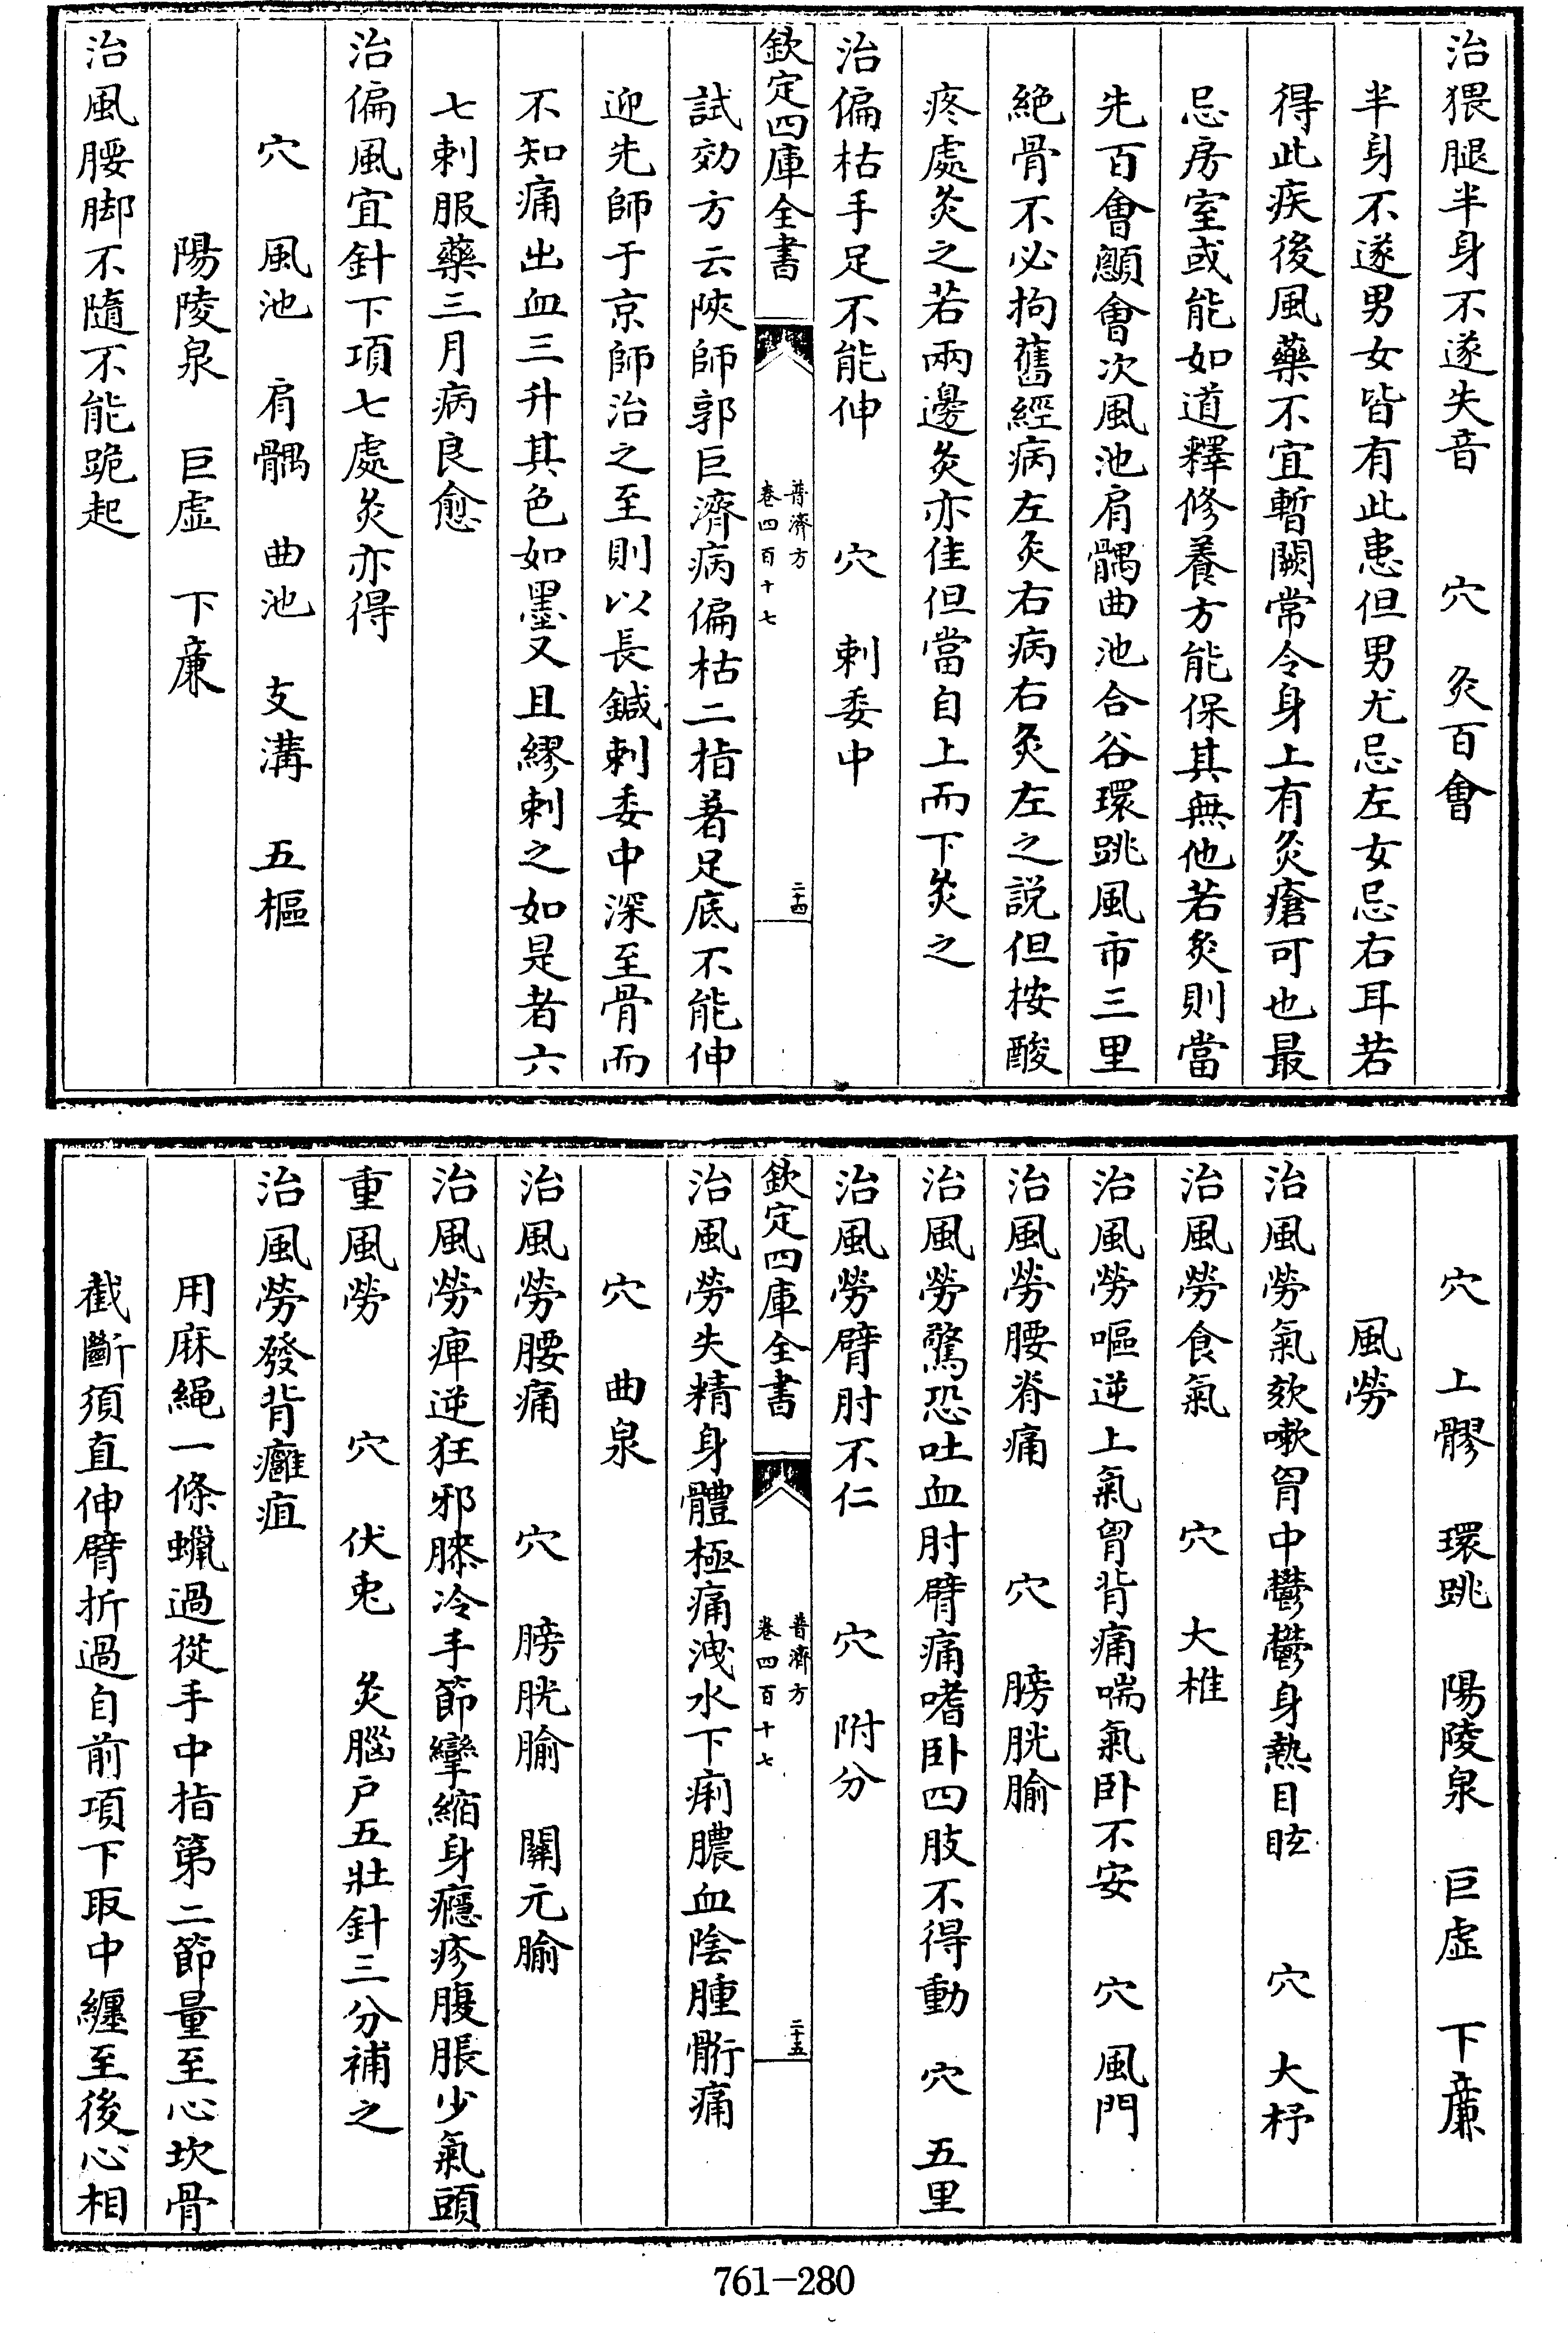 治猥腿半身不遂失音　穴　灸百會
半身不遂男女皆有此患但男尤忌左女忌右耳若
得此疾後風藥不宜暫闕常令身上有灸瘡可也最
忌房室或能如道釋修養方能保其無他若灸則當
先百會顖會次風池肩髃曲池合谷環跳風市三里
絶骨不必拘舊經病左灸右病右灸左之説但按酸
疼處灸之若兩邊灸亦佳但當自上而下灸之
治偏枯手足不能伸　穴　刺委中
欽定四庫全書
普濟方
卷四百十七
二十四
試効方云陜師郭巨濟病偏枯二指著足底不能伸
迎先師于京師治之至則以長鍼刺委中深至骨而
不知痛出血三升其色如墨又且繆刺之如是者六
七刺服藥三月病良愈
治偏風宜針下項七處灸亦得
穴　風池　肩髃　曲池　支溝　五樞
陽陵泉　巨虛　下廉
治風腰脚不隨不能跪起
穴　上髎　環跳　陽陵泉　巨虛　下廉
風勞
治風勞氣欬嗽胷中鬱鬱身熱目眩　穴　大杼
治風勞食氣　穴　大椎
治風勞嘔逆上氣胷背痛喘氣卧不安　穴　風門
治風勞腰脊痛　穴　膀胱腧
治風勞驚恐吐血肘臂痛嗜卧四肢不得動　穴　五里
治風勞臂肘不仁　穴　附分
欽定四庫全書
普濟方
卷四百十七
二十五
治風勞失精身體極痛洩水下痢膿血陰腫䯒痛
穴　曲泉
治風勞腰痛　穴　膀胱腧　關元腧
治風勞痺逆狂邪膝冷手節攣縮身癮疹腹脹少氣頭
重風勞　穴　伏兎　灸腦户五壯針三分補之
治風勞發背癰疽
用麻繩一條蠟過從手中指第二節量至心坎骨
截斷須直伸臂折過自前項下取中纏至後心相
761-280